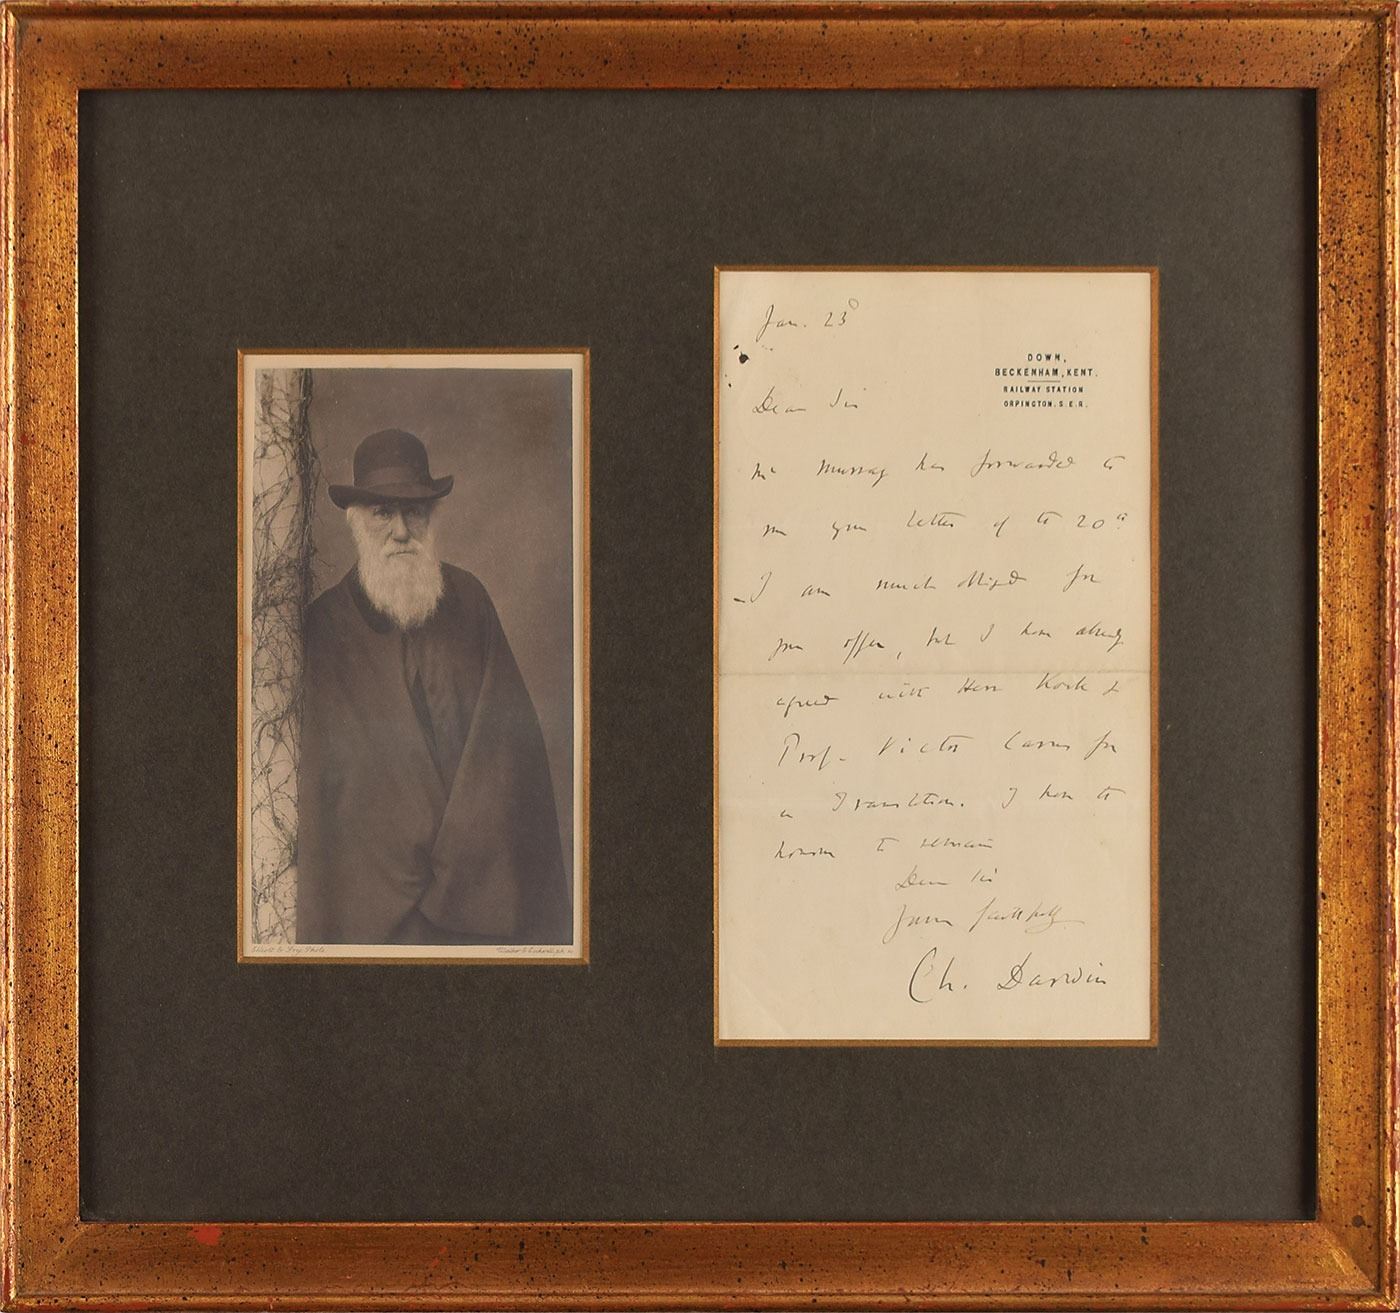 Jan. 23d
DOWN,
BECKENHAM, KENT.
RAILWAY STATION
ORPINGTON. S.E.R.
Dear Sir
Mr Murray has forwarded to
me your letter of the 20th
I am much obliged for
your offer, but I have already
agreed with Herr Koch &
Prof. Victor Carus for
a Translation. I have the
honour to remain
Dear Sir
Yours faithfully
Ch. Darwin
Elliott & Fry. Photo.
Walker &